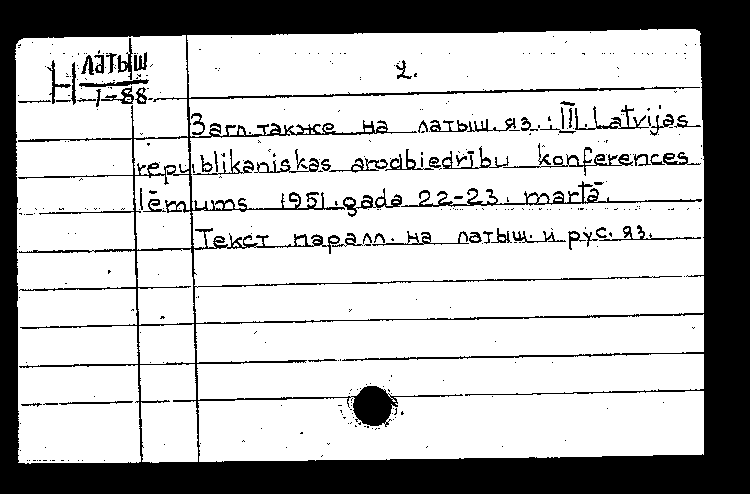 Н латыш
1-88
2.
Загл. также на латыш. яз.: III. Latvijas
republikaniskas arodbiedrību konferences
lēmums 1951. gada 22-23. martā.
Текст паралл. на латыш. и рус. яз.